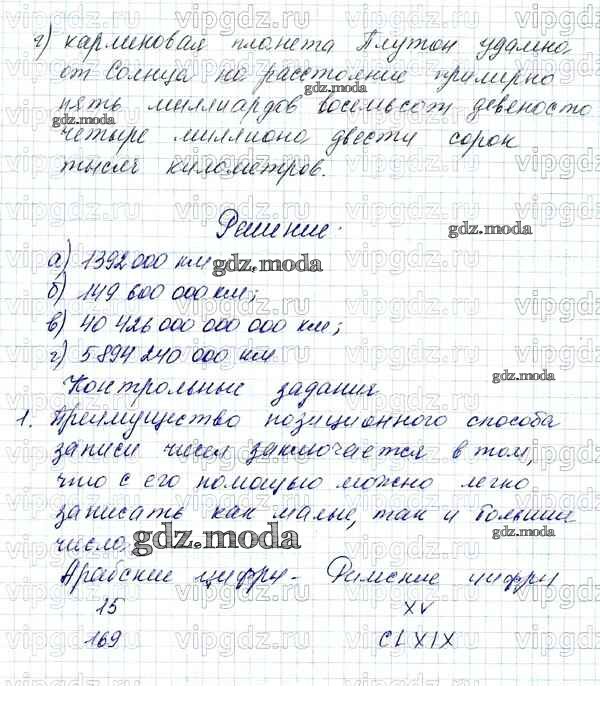 г) карликовая планета Плутон удалена
от Солнца на расстояние примерно
пять миллиардов восемьсот девяносто
четыре миллиона двести сорок
тысяч километров.
Решение.
а) 1392 000 км
б) 149 600 000 км;
в) 40 426 000 000 000 км;
г) 5 894 240 000 км
Контрольные задания
1. Преимущество позиционного способа
записи чисел заключается в том,
что с его помощью можно легко
записать как малые, так и большие
числа.
Арабские цифры - Римские цифры
15 XV
169 CLXIX
gdz.moda
vipgdz.ru